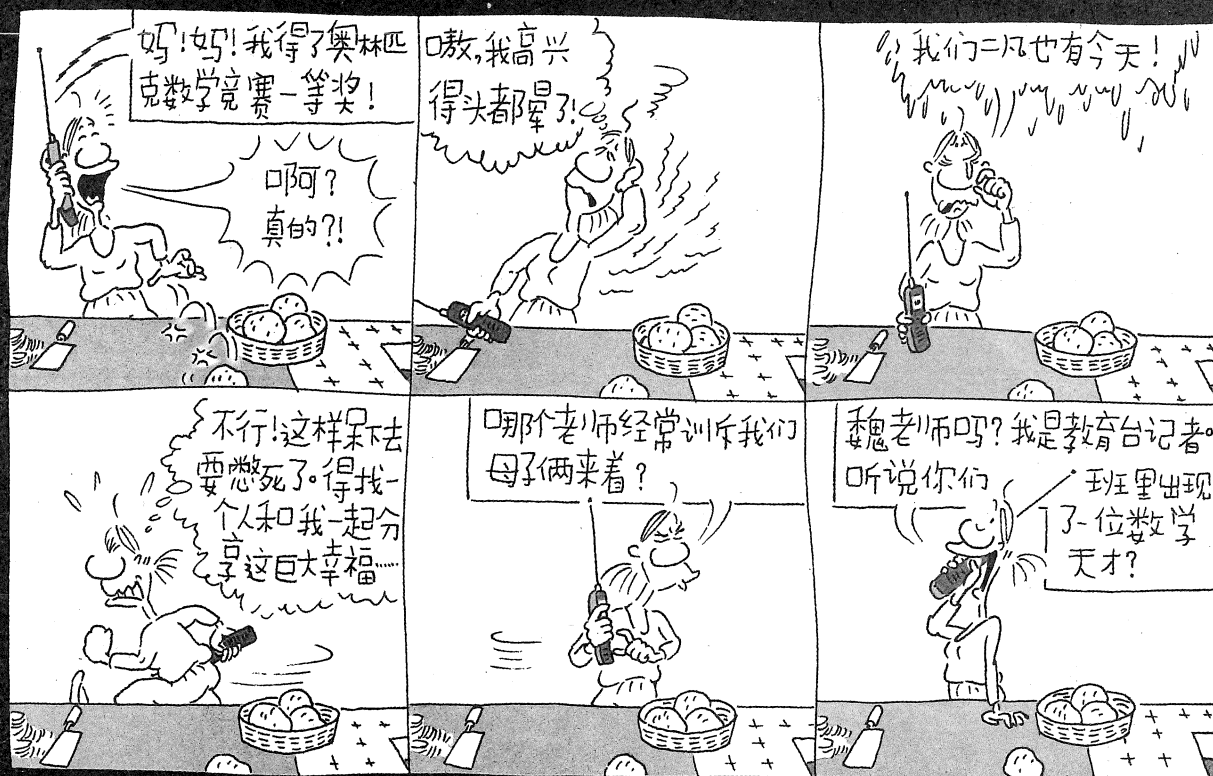 妈！妈！我得了奥林匹
克数学竞赛一等奖！
啊？
真的？！
嗷，我高兴
得头都晕了！
我们二凡也有今天！
不行！这样呆下去
要憋死了。得找一
个人和我一起分
享这巨大幸福……
哪个老师经常训斥我们
母子俩来着？
魏老师吗？我是教育台记者。
听说你们
班里出现
了一位数学
天才？